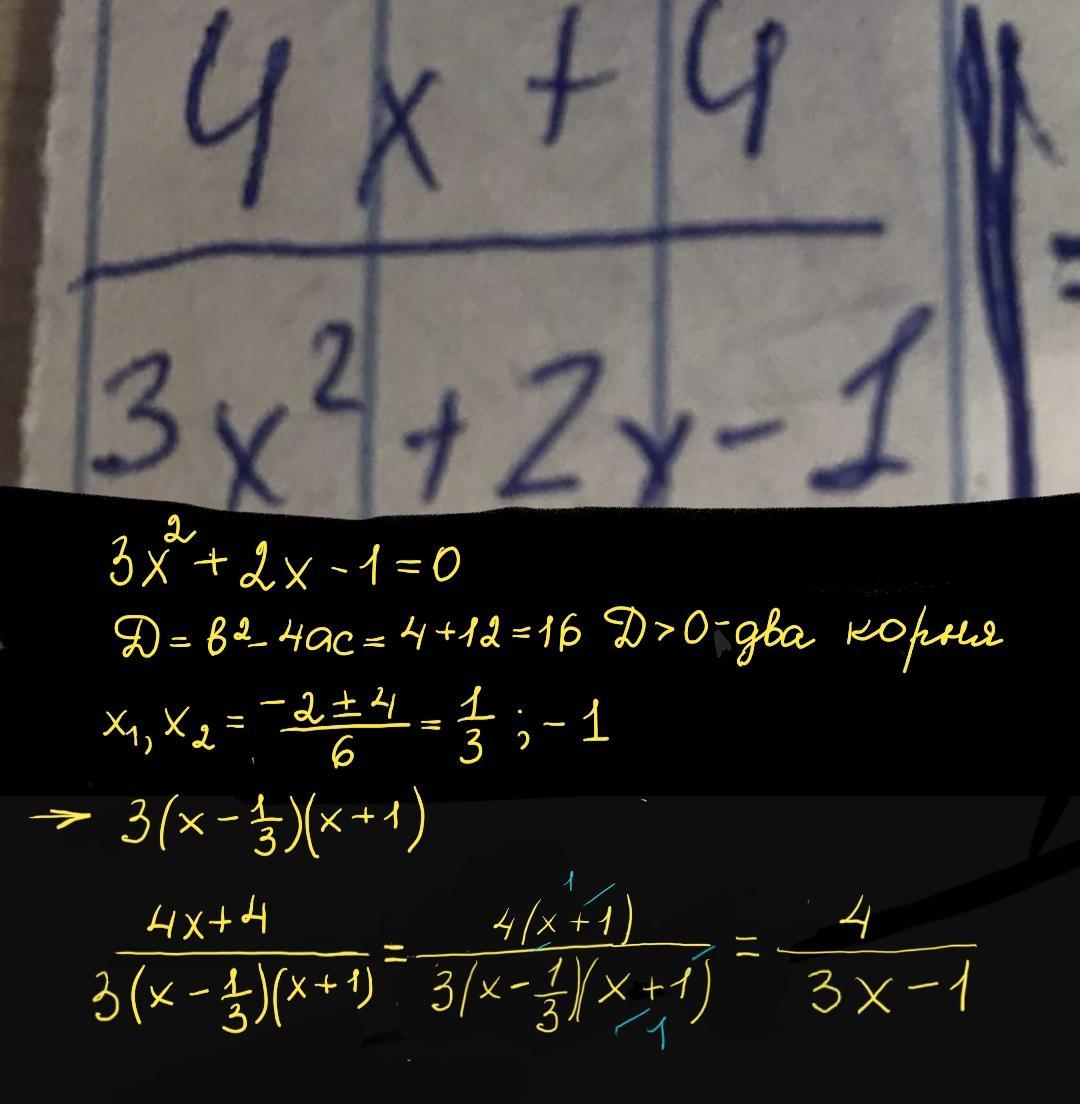 4x + 4 =
3x² + 2x - 1
3x² + 2x - 1 = 0
D = b² - 4ac = 4 + 12 = 16 D > 0 - два корня
x₁, x₂ = (-2 ± 4)/6 = 1/3 ; - 1
→ 3(x - 1/3)(x + 1)
(4x + 4)/(3(x - 1/3)(x + 1)) = (4(x + 1) 1)/(3(x - 1/3)(x + 1) 1) = 4/(3x - 1)